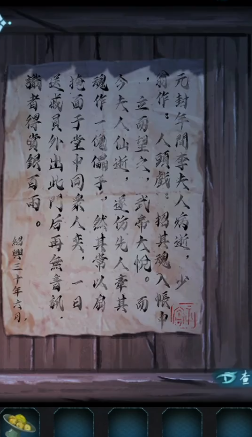 元封年間李夫人病逝，少
翁作：人頭戲，招其魂入帳中
，立而望之，武帝大悅。而
今夫人仙逝，遂仿先人牽其
魂作一傀儡子，然其常以扇
掩面于堂中同衆人奕，一日
送戒員外出此门后再無音訊。
識者得賞銀百兩。
紹興三十年六月
查